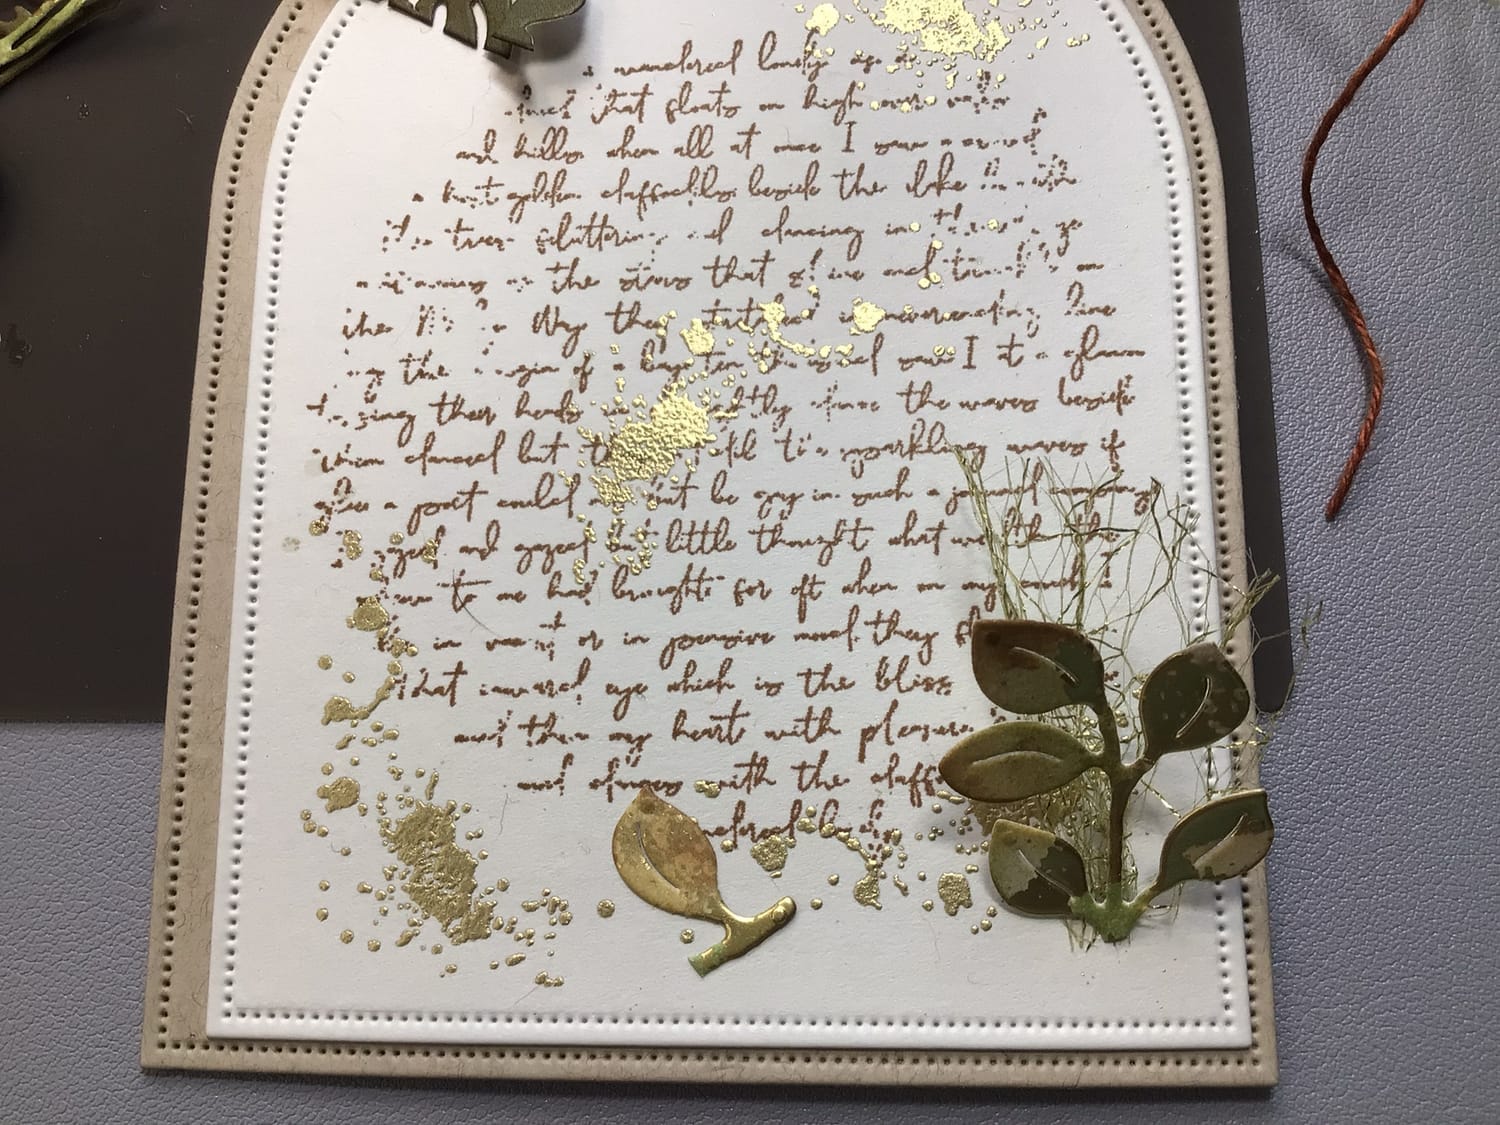 wandered lonely as a
that floats on high over vales
and hills when all at once I saw a crowd
a host golden daffodils beside the lake
the trees fluttering and dancing in the
as the stars that shine and twinkle on
the Way they stretched in never ending line
the margin of a bay ten thousand saw I at a glance
tossing their heads in sprightly dance the waves beside
them danced but the sparkling waves if
glee a poet could not but be gay in such a jocund company
gazed and gazed but little thought what the
to me had brought for oft when on my couch I
in vacant or in pensive mood they
that inward eye which is the bliss
and then my heart with pleasure
and dances with the